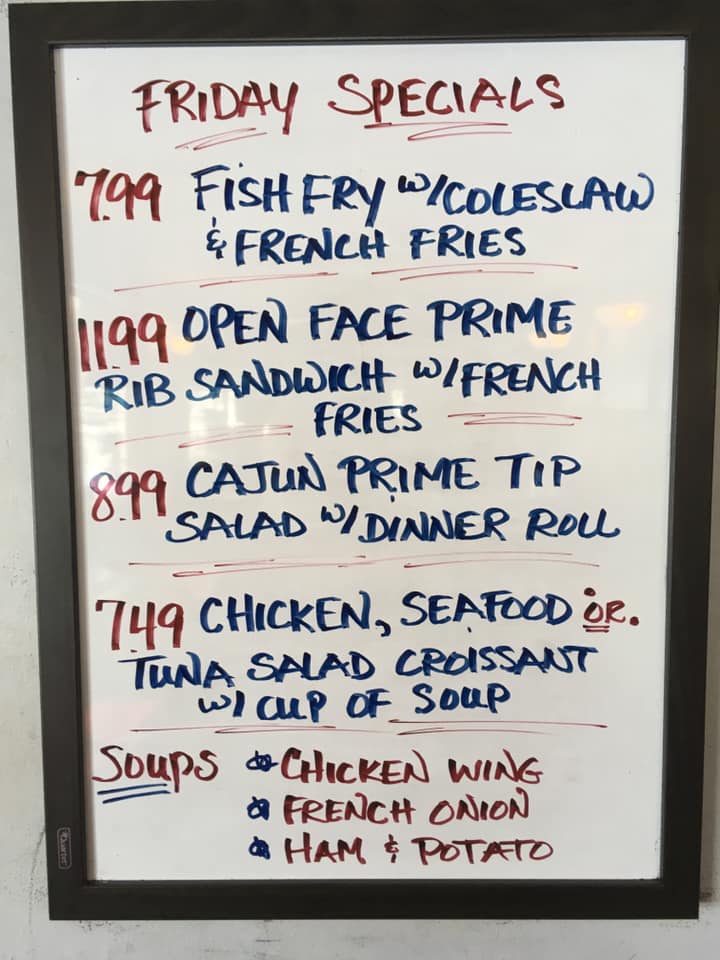 FRIDAY SPECIALS
7.99 FISH FRY w/COLESLAW
& FRENCH FRIES
11.99 OPEN FACE PRIME
RIB SANDWICH w/FRENCH
FRIES
8.99 CAJUN PRIME TIP
SALAD w/DINNER ROLL
7.49 CHICKEN, SEAFOOD OR.
TUNA SALAD CROISSANT
w/ CUP OF SOUP
SOUPS CHICKEN WING
FRENCH ONION
HAM & POTATO
QUARTET